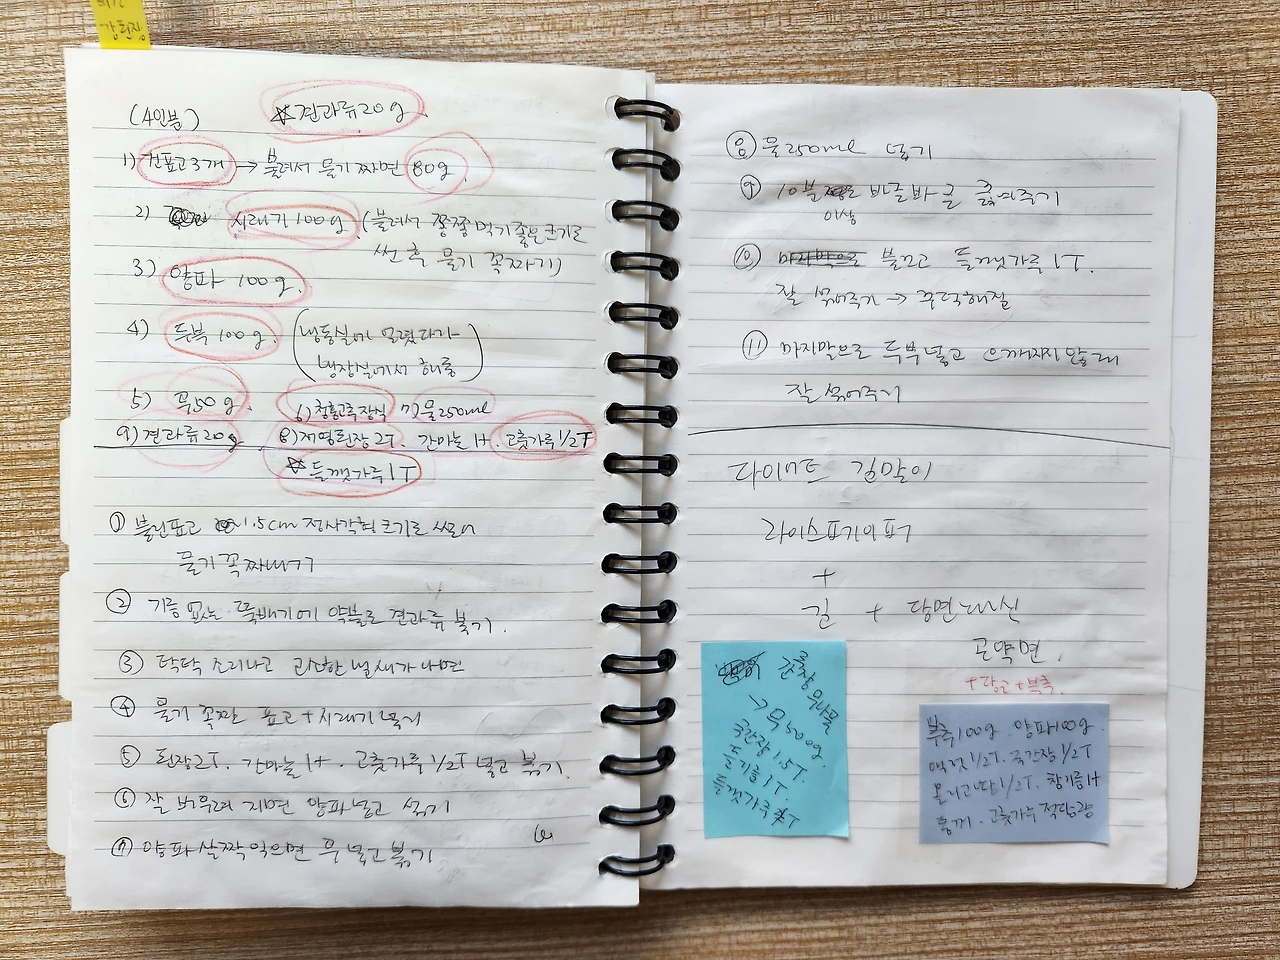 강된장
(4인분) ☆견과류20g.
1) 건표고3개 → 불려서 물기 짜면 80g.
2) 시래기100g (불려서 쫑쫑 먹기좋은크기로
썬 후 물기 꼭짜기)
3) 양파 100g.
4) 두부100g. (냉동실에 얼렸다가
냉장실에서 해동)
5) 무50g. 6)청홍고추장식 7)물250ml
9) 견과류20g 8)재영된장2T. 간마늘1t. 고춧가루1/2T
☆들깻가루1T
① 불린표고 1.5cm 정사각형크기로 썰어
물기꼭짜내기
② 기름없는 뚝배기에 약불로 견과류 볶기.
③ 탁탁 소리나고 고소한 냄새가 나면
④ 물기 꼭짠 표고+시래기 넣기
⑤ 된장2T. 간마늘1t. 고춧가루1/2T 넣고 볶기.
⑥ 잘 버무려 지면 양파넣고 섞기
⑦ 양파살짝익으면 무넣고볶기
⑧ 물250ml 넣기
⑨ 10분 바글바글 끓여주기
이상
⑩ 불끄고 들깻가루1T.
잘 섞어주기 → 꾸덕해짐
⑪ 마지막으로 두부넣고 으깨지지않게
잘 섞어주기
다이어트 김말이
라이스페이퍼
+
김 + 당면대신
곤약면.
+당근+부추.
무나물
→ 무500g.
국간장1.5T.
들기름1T.
들깻가루 T
부추100g. 양파100g.
액젓1/2T. 국간장1/2T
알리고당1/2T. 참기름1t
통깨. 고춧가루 적당량